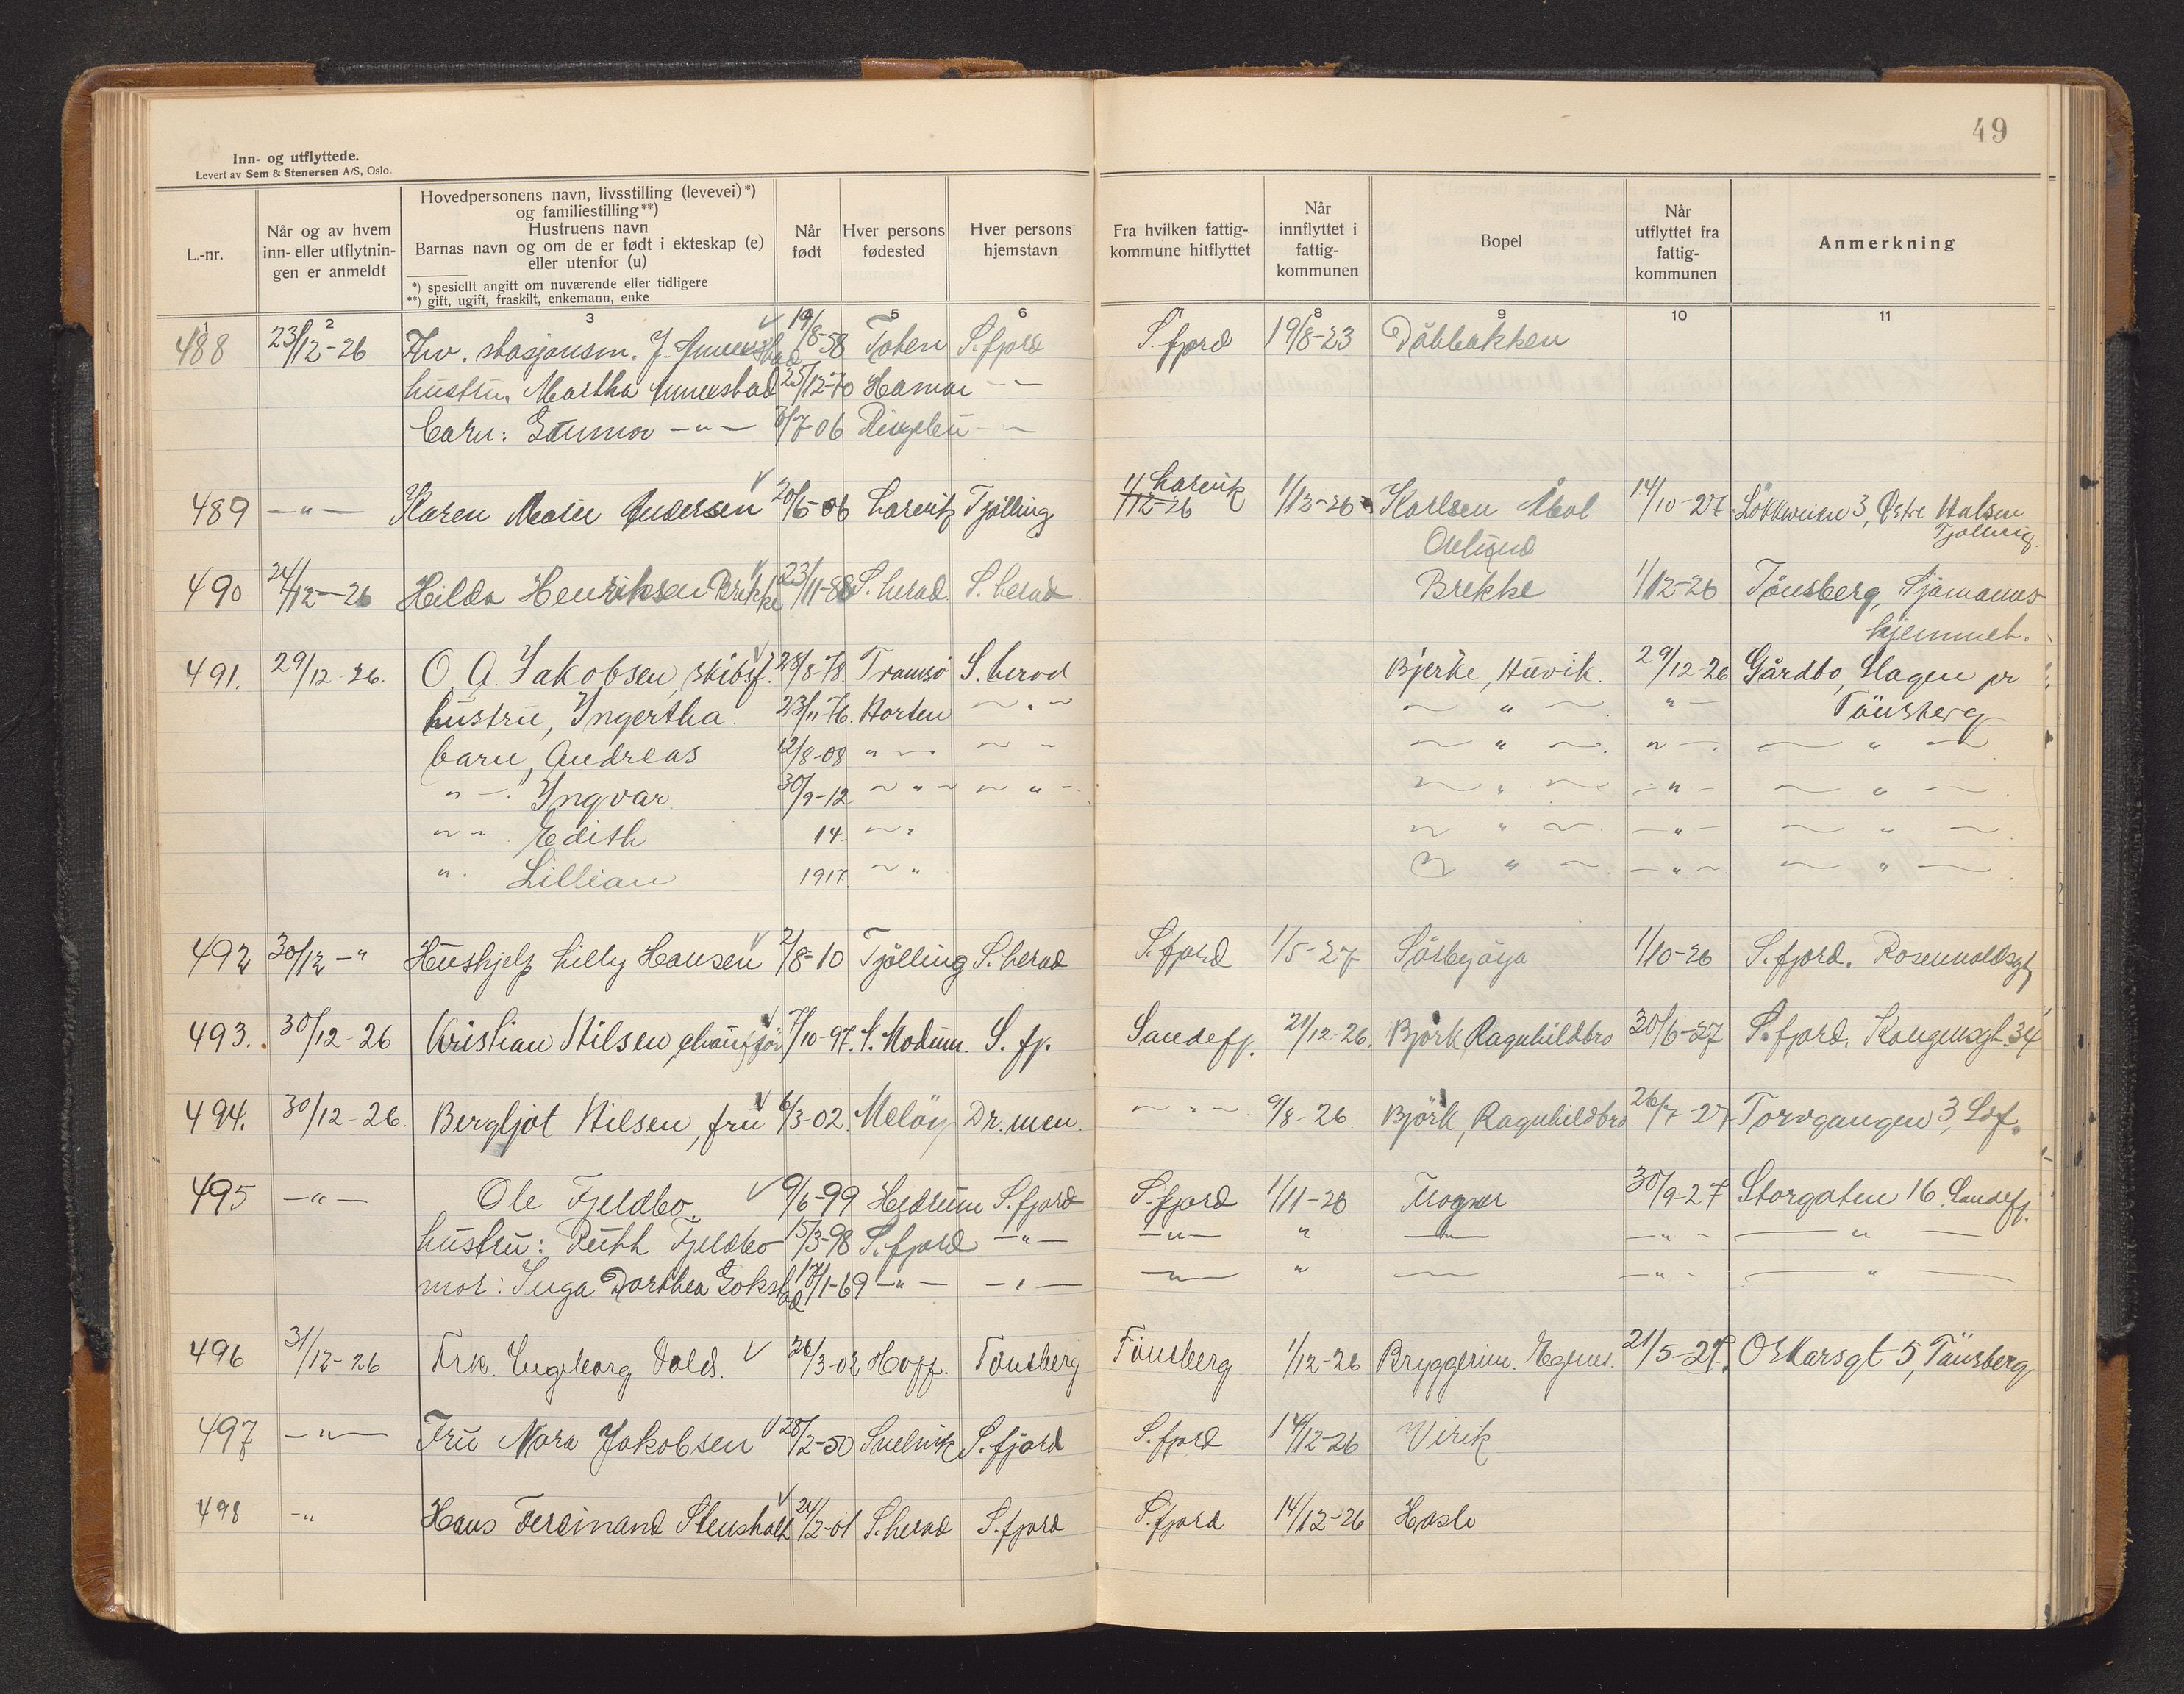 49
Inn- og utflyttede.
Levert av Sem & Stenersen A/S, Oslo.
L.-nr.
Når og av hvem inn- eller utflytnin- gen er anmeldt
Hovedpersonens navn, livsstilling (levevei)*)
og familiestilling**)
Hustruens navn
Barnas navn og om de er født i ekteskap (e)
eller utenfor (u)
*) spesiellt angitt om nuværende eller tidligere
**) gift, ugift, fraskilt, enkemann, enke
Når født
Hver persons fødested
Hver persons hjemstavn
Fra hvilken fattig- kommune hitflyttet
Når innflyttet i fattig- kommunen
Bopel
Når utflyttet fra fattig- kommunen
Anmerkning
1 2 3 5 6 8 9 10 11
488 23/12-26 Fhv. stasjonsm. J. 19/8-58 Toten S.fjord S.fjord 19/8-23
hustru Martha 25/12-70 Hamar - -
barn: Gunnor -"- 7/7-06 Ringebu - -
489 -"- Karen Marie Andersen 20/5-06 Larvik Tjölling Larvik 1/12-26 1/12-26 Karlsen 14/10-27 3, Østre Halsen
Tjölling.
490 24/12-26 Hilda Henriksen Brekke 23/11-88 S.herad S.herad Brekke 1/12-26 Tönsberg, Sjömanns-
hjemmet.
491. 29/12-26. O. A. Jakobsen, skibsf. 28/8-78. Tromsö S.herad Bjerke, Huvik. 29/12-26 Gårdbo, Slagen pr
hustru, Ingertha. 23/11-76. Horten - " - - " - " - Tönsberg
barn, Andreas 12/8-08 " - - - - " - . " - . - " -
" - . Ingvar 30/9-12 - " - - " - - " - - " - - " -
" - Edith 14 - " - " - - " - - " -
" . Lillian 1917. - " - " - - " - - " -
492 30/12 -" Hushjelp Lilly Hansen 2/8-10 Tjölling S.herad S.fjord 1/5-27 1/10-26 S.fjord.
493. 30/12-26 Kristian Nilsen, chaufför 7/10-97. S. Modum. S. fj. Sandefj. 21/12-26. Björk Ragnhildbro 30/6-27 S.fjord, Kongensgt. 34
494. 30/12-26. Bergljot Nilsen, fru 6/3-02. Melöy Dr.men. - " - . 9/8-26 Björk, Ragnhildbro 26/7-27 Torvgangen 3,
495 -"- Ole Fjeldbo 9/6-99 Hedrum S.fjord S.fjord 1/11-26 30/9-27 Storgaten 16. Sandefj.
hustru: Ruth Fjeldbo 15/3-98 S.fjord -"- -"- " - - " - - " -
mor: Inga Dorthea Gokstad 17/1-69 -"- -"- -"- " - - " - - " -
496 31/12-26 Frk. Engeborg Vold. 26/3-02 Hoff. Tönsberg Tönsberg 1/12-26 21/5-29. Oskarsgt 5, Tönsberg
497 -"- Fru Nora Jakobsen 28/2-50 Svelvik S.fjord S.fjord 14/12-26 Virik
498 -" Hans Ferdinand Stensholt 24/2-01 S.herad S.fjord S.fjord 14/12-26 Hasle